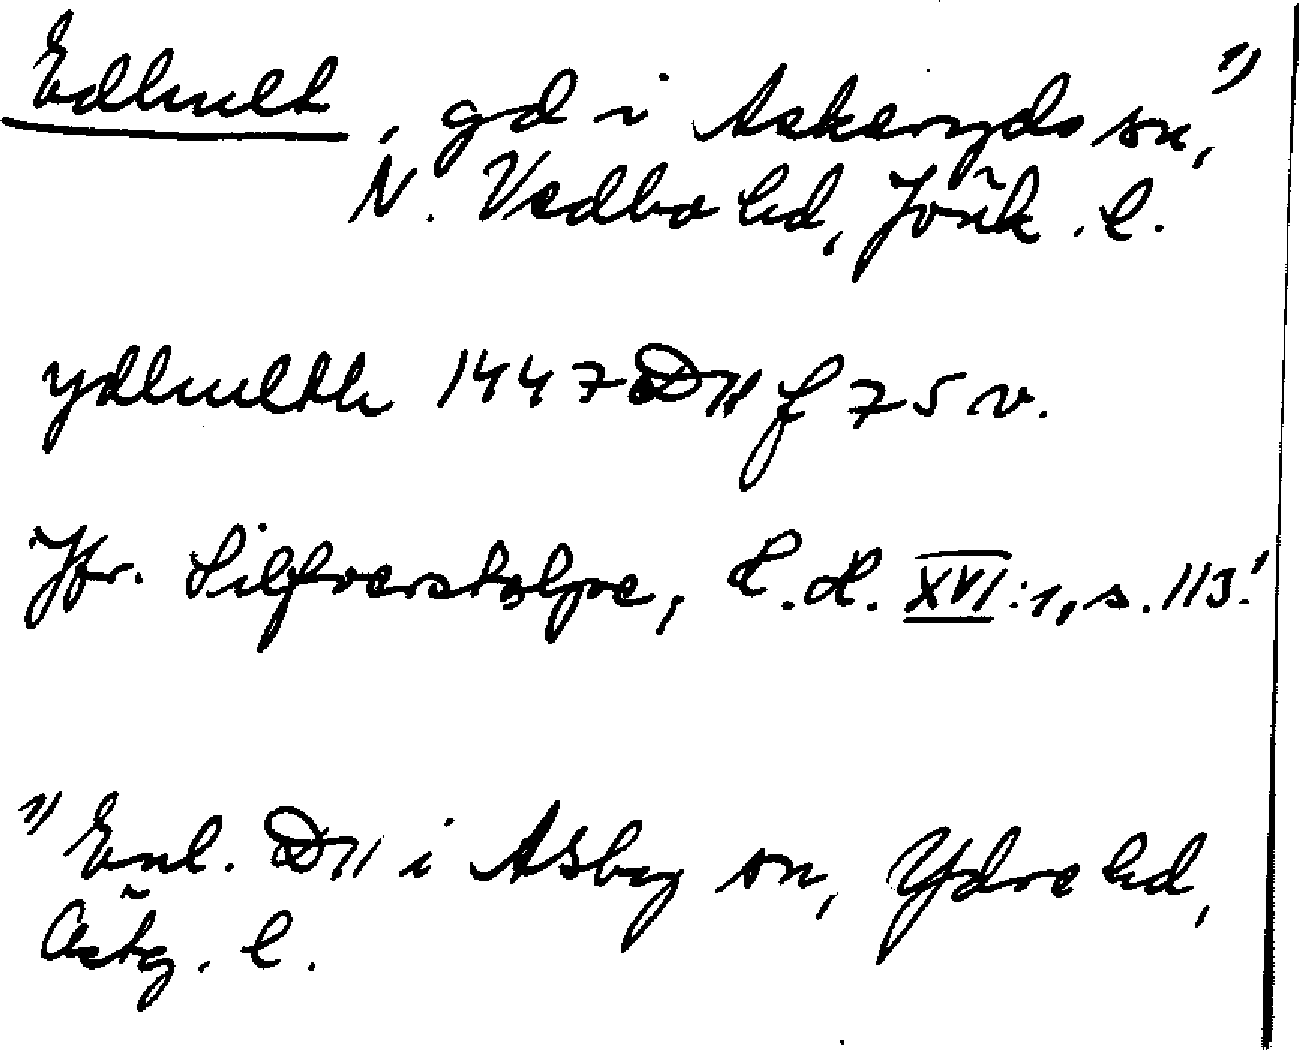 Edhult, gd i Askeryds sn, 1)
N. Vedbo hd, Jönk. l.
ydhulth 1447 D 11 f 75 v.
Jfr. Silfverstolpe, H.H. XVI:1, s. 113.
1) Enl. D 11 i Asby sn, Ydre hd,
Östg. l.